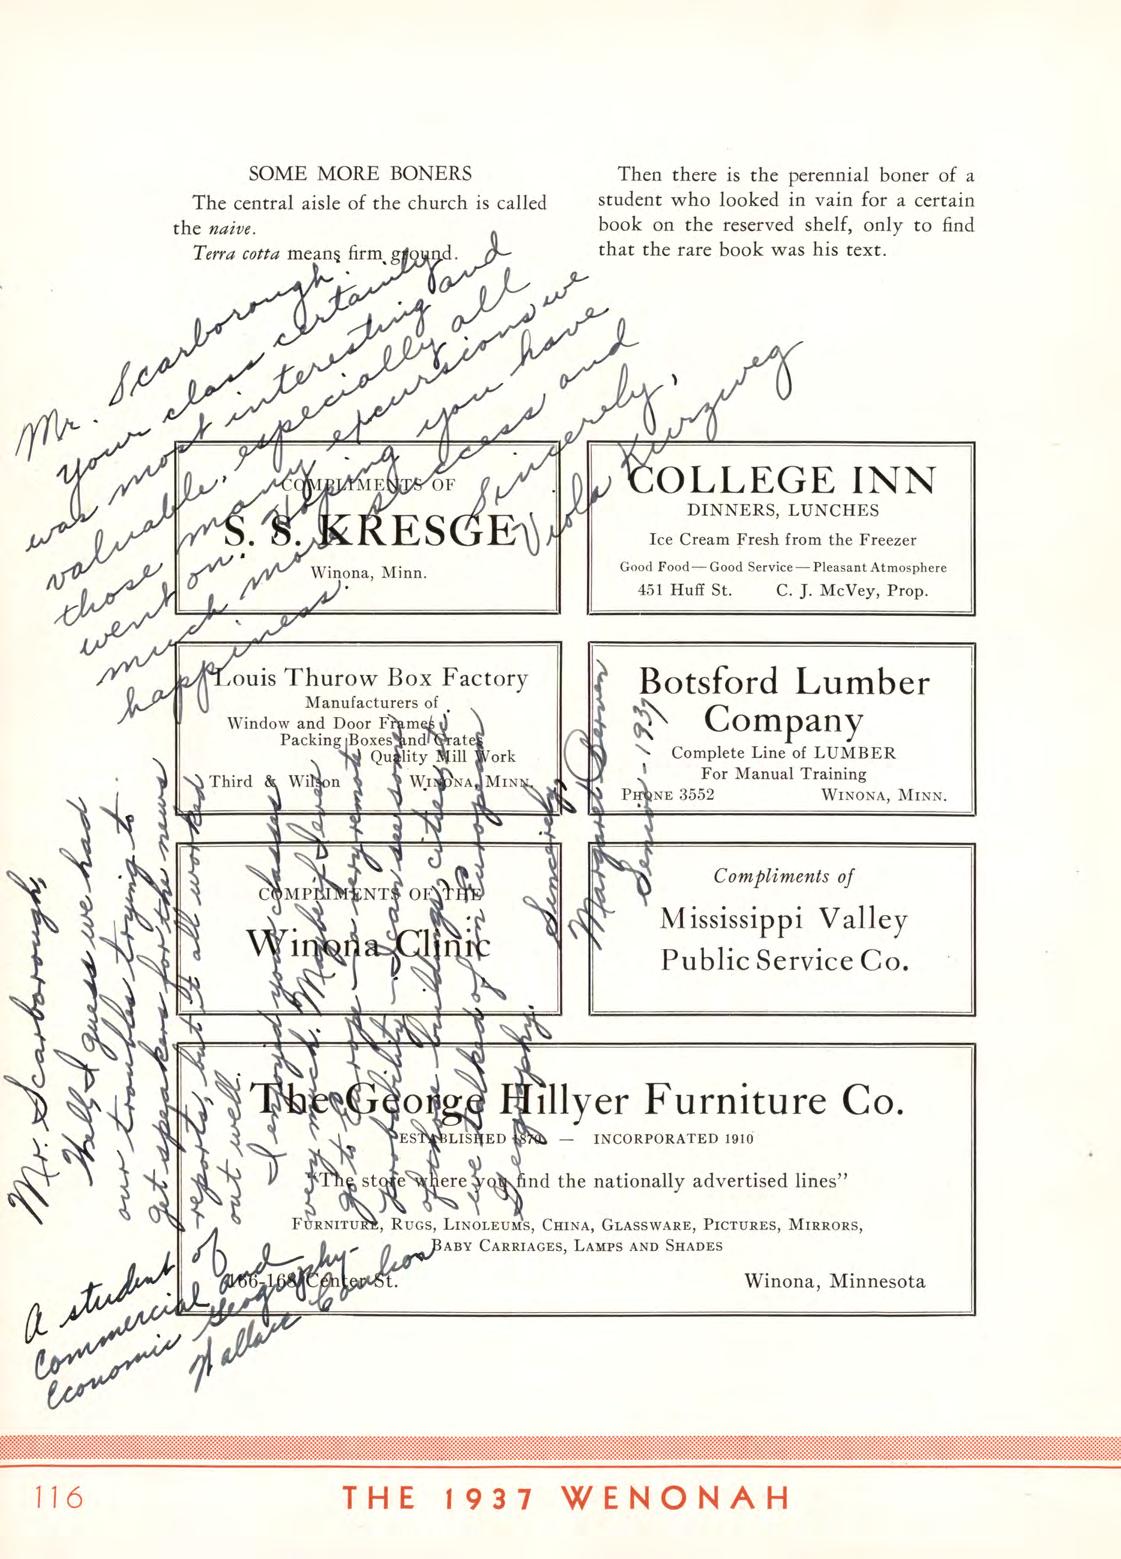 SOME MORE BONERS
The central aisle of the church is called
the naive.
Terra cotta means firm ground.
Then there is the perennial boner of a
student who looked in vain for a certain
book on the reserved shelf, only to find
that the rare book was his text.
Mr. Scarborough:
Your class certainly
was most interesting and
valuable, especially all
those many excursions we
went on. Hoping you have
much more success and
happiness.
Sincerely,
Viola Kurzweg
COMPLIMENTS OF
S. S. KRESGE
Winona, Minn.
COLLEGE INN
DINNERS, LUNCHES
Ice Cream Fresh from the Freezer
Good Food—Good Service—Pleasant Atmosphere
451 Huff St. C. J. McVey, Prop.
Louis Thurow Box Factory
Manufacturers of
Window and Door Frames
Packing Boxes and Crates
Quality Mill Work
Third & Wilson WINONA, MINN.
Botsford Lumber
Company
Complete Line of LUMBER
For Manual Training
PHONE 3552 WINONA, MINN.
COMPLIMENTS OF THE
Winona Clinic
Compliments of
Mississippi Valley
Public Service Co.
Mr. Scarborough,
Well, I guess we had
our troubles trying to
get speakers for the news
reports, but it all worked
out well.
I enjoyed your classes
very much. Maybe if I ever
go to Europe — a very remote
probability — I can see some
of those buildings, cities, etc.
we talked of in European
Geography.
Sincerely,
Margaret
Senior - 1937
The George Hillyer Furniture Co.
ESTABLISHED 1870 — INCORPORATED 1910
"The store where you find the nationally advertised lines"
FURNITURE, RUGS, LINOLEUMS, CHINA, GLASSWARE, PICTURES, MIRRORS,
BABY CARRIAGES, LAMPS AND SHADES
166-168 Center St. Winona, Minnesota
A student of
Commercial and
Economic Geography-
Wallace
116 THE 1937 WENONAH